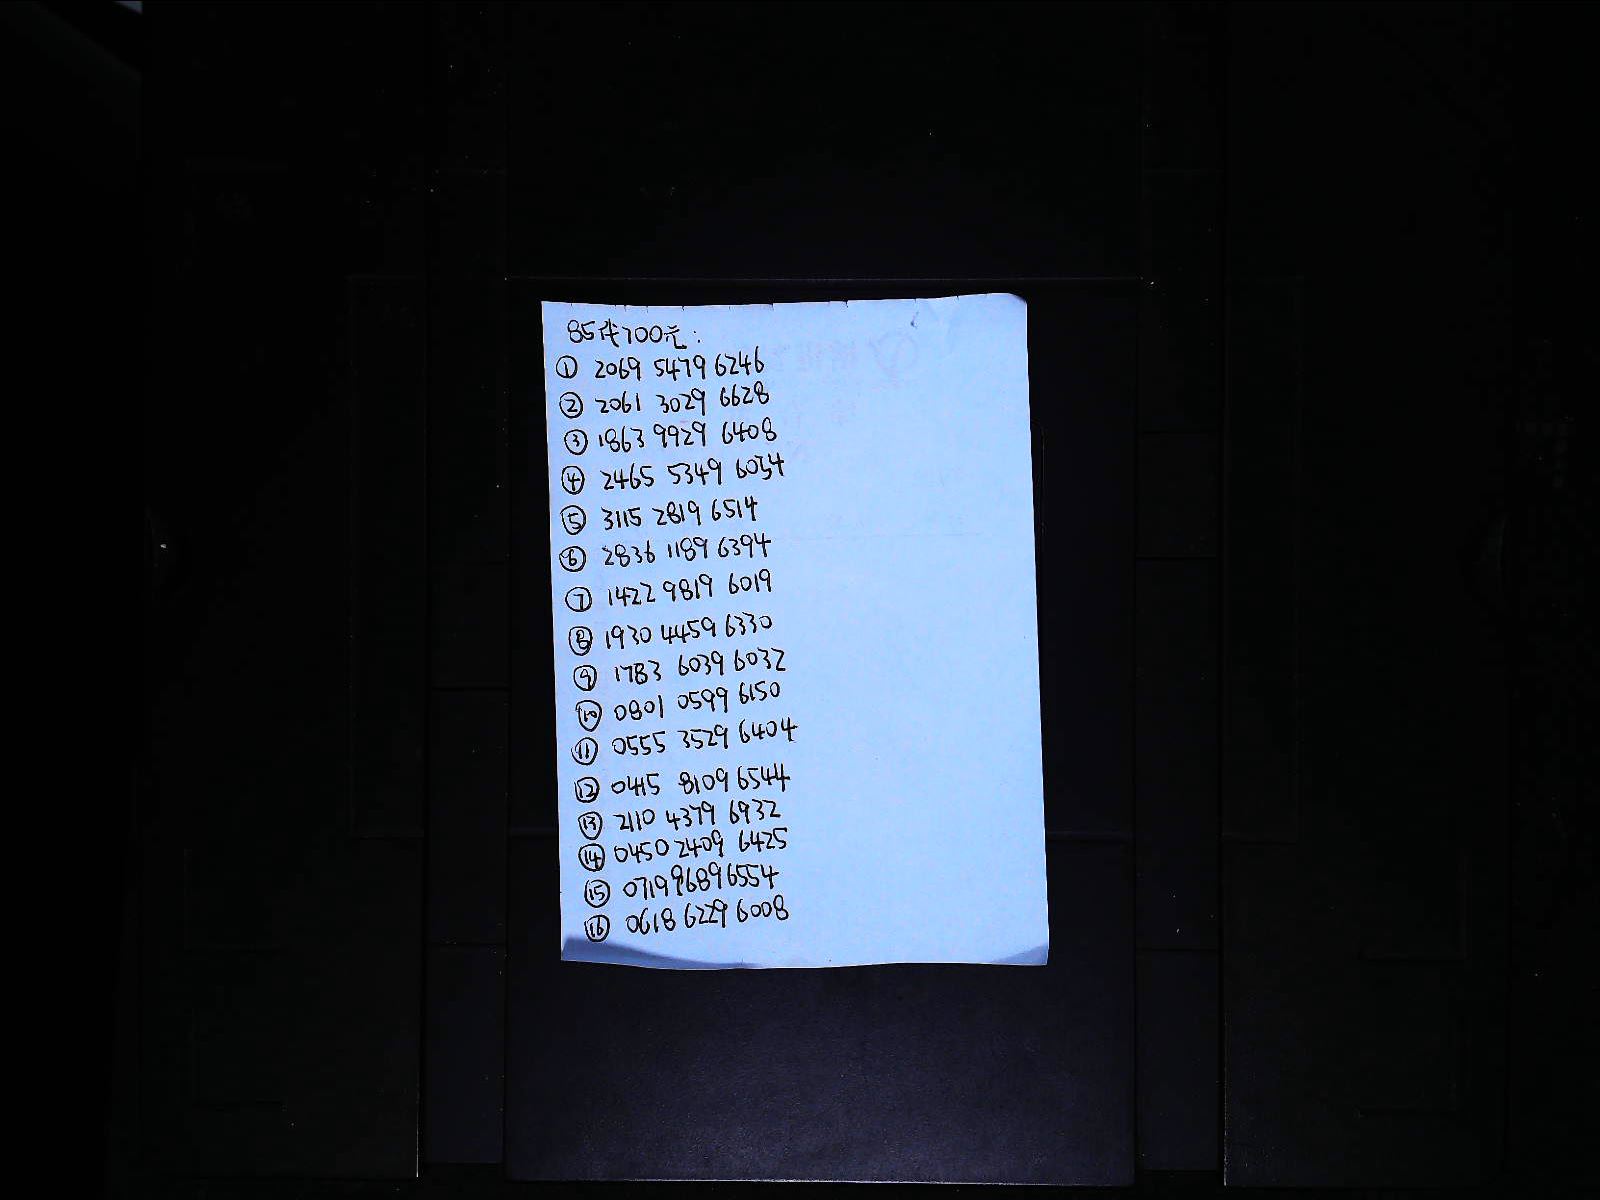 85代100元:
① 2069 5479 6246
② 2061 3029 6628
③ 1863 9929 6408
④ 2465 5349 6034
⑤ 3115 2819 6514
⑥ 2836 1189 6394
⑦ 1422 9819 6019
⑧ 1930 4459 6330
⑨ 1783 6039 6032
⑩ 0801 0599 6150
⑪ 0555 3529 6404
⑫ 0415 8109 6544
⑬ 2110 4379 6932
⑭ 0450 2409 6425
⑮ 0719 9689 6554
⑯ 0618 6229 6008